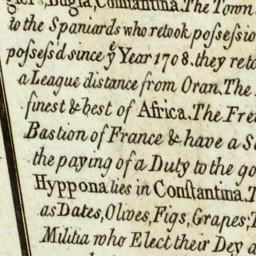 Bugia, Constantina. The Town
to the Spaniards who retook poſseſsio
poſseſs'd since yͤ Year 1708. they reto
a League distance from Oran. The
finest & best of Africa. The Fre
Bastion of France & have a S
the paying of a Duty to the go
Hyppona lies in Conſtantina. T
as Dates, Olives, Figs, Grapes; T
Militia who Elect their Dey a